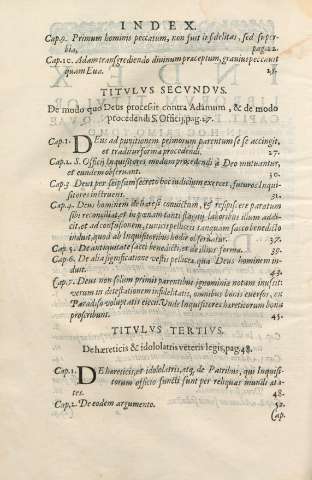 INDEX.
Cap.9. Primum hominis peccatum, non fuit infidelitas, sed super-
bia, pag.22.
Cap.10. Adam transgrediendo divinum præceptum, gravius peccavit
quam Eua. 25.
TITVLVS SECVNDVS.
De modo quo Deus processit contra Adamum, & de modo
procedendi S. Officij, pag. 27.
Cap.1. DEus ad punitionem primorum parentum se se accingit,
et traditur forma procedendi. 27.
Cap.2. S. Officij Inquisitores modum procedendi à Deo mutuantur,
et eundem observant. 30.
Cap.3 Deus per seipsum secreto hoc iudicium exercet, futuros Inqui-
sitores instruens. 31.
Cap.4. Deus hominem de hæresi convictum, & respiscere paratum
sibi reconciliat, et in pœnam tanti flagitij, laboribus illum addi-
cit, et ad confusionem, tunica pellicea tanquam sacco benedicto
induit, quod ab Inquisitoribus hodie observatur. 37.
Cap.5. De antiquitate sacci benedicti, et de illius forma. 39.
Cap.6. De alia significatione vestis pelliceæ, qua Deus hominem in-
duit. 43.
Cap.7. Deus non solum primis parentibus ignominiæ notam inussit:
verum in detestationem infidelitatis, omnibus bonis exersos, ex
Paradiso voluptatis eiecit. Vnde Inquisitores hæreticorum bona
proscribunt. 45.
TITVLVS TERTIVS.
De hæreticis & idololatris veteris legis, pag. 48.
Cap.1. DE hæreticis, et idololatris, atq, de Patribus, qui Inquisi-
torum officio functi sunt per reliquas mundi æta-
tes. 48.
Cap.2. De eodem argumento. 50.
Cap.